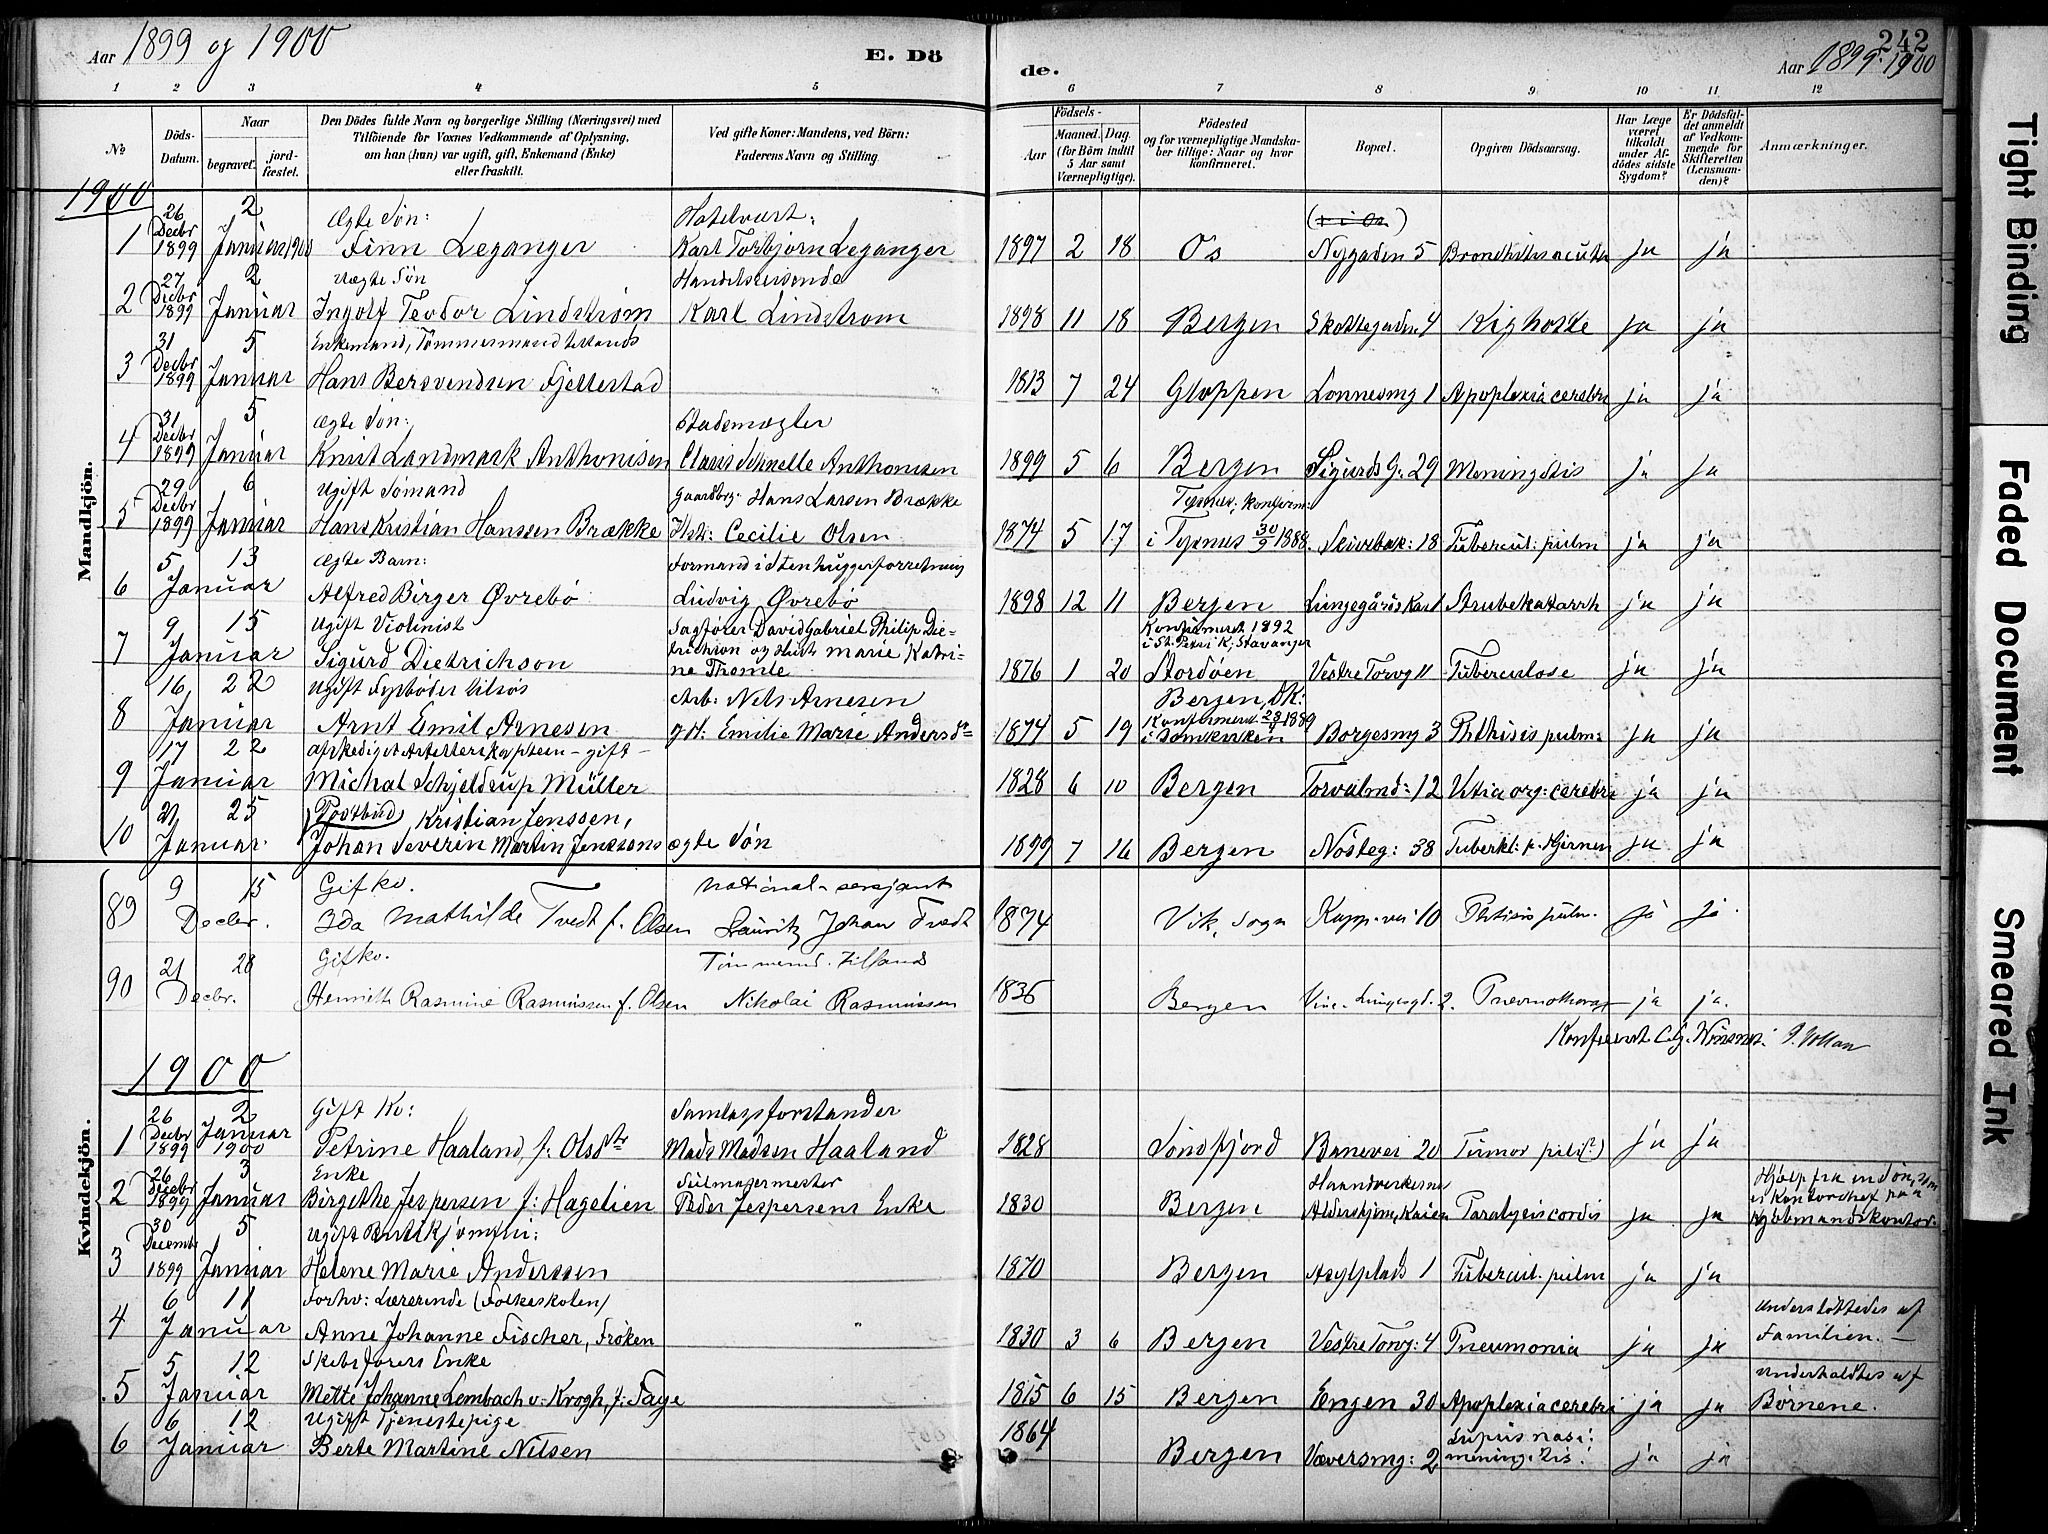 Aar 1899 og 1900
E. Dö
de.
242
Aar 1899. 1900
1 2 3 4 5 6 7 8 9 10 11 12
No
Döds-Datum.
Naar
begravet.
jord-fæstet.
Den Dödes fulde Navn og borgerlige Stilling (Næringsvei) med
Tilföiende for Voxnes Vedkommende af Oplysning,
om han (hun) var ugift, gift, Enkemand (Enke)
eller fraskilt.
Ved gifte Koner: Mandens, ved Börn:
Faderens Navn og Stilling.
Födsels-
Aar
Maaned. Dag.
(for Börn indtil
5 Aar samt
Værnepligtige).
Födested
og for værnepligtige Mandska-
ber tillige: Naar og hvor
konfirmeret.
Bopæl.
Opgiven Dödsaarsag.
Har Læge
været
tilkaldt
under Af-
dödes sidste
Sygdom?
Er Dödsfal-
det anmeldt
af Vedkom-
mende for
Skifteretten
(Lensman-
den)?
Anmærkninger.
Mandkjön.
1900
26 2 Ægte Søn: Hotelvært:
1 Decbr 1899 Januar 1900 Finn Leganger Karl Torbjørn Leganger 1897 2 18 Os Nygaden 5 Bronchitis acuta ja ja
27 2 Uægte Søn Handelsreisende
2 Decbr 1899 Januar Ingolf Teodor Lindstrøm Karl Lindstrøm 1898 11 18 Bergen Skottegaden 4 Kighoste ja ja
31 5 Enkemand, Tømmermand
3 Decbr 1899 Januar Hans Bersvendsen Fjellestad 1813 7 24 Gloppen 1 Apoplexia cerebri ja ja
31 5 Ægte Søn:
4 Decbr 1899 Januar Knut Landmark Anthonisen Claus Schnelle Anthonisen 1899 5 6 Bergen Sigurds G. 29 Meningitis ja ja
29 6 Ugift Sømand Gaardbr. Hans Larsen Brække Tysnes; konfirm:
5 Decbr 1899 Januar Hans Kristian Hanssen Brække Hstr: Cecilie Olsen 1874 5 17 i Tysnus 30/9 1888. Skivebak: 18 Tubercul: pulm ja ja
5 13 Ægte Barn: Formand i Stenhuggerforretning
6 Januar Alfred Birger Øvrebø Ludvig Øvrebø 1898 12 11 Bergen Strubekatarrh ja ja
9 15 Ugift Violinist Sagfører David Gabriel Philip Die-
Konfirmeret 1892
i St. Petri K, Stavanger
7 Januar Sigurd Dietrichson trichson og Hust Marie Katri-
ne Tromle 1876 1 20 Stordøen Vestre Torvg 11 Tuberculose ja ja
16 22 Ugift Arb: Nels Arnesen Bergen, DK:
8 Januar Arnt Emil Arnesen Emilie Marie Andersd 1874 5 19 Konfirmeret 1889 i Domkirken Borgesmg 3 Phthisis pulm: ja ja
17 22 afskediget gift
9 Januar Michal Schjeldrup Müller 1828 6 10 Bergen Torvalmd: 12 Vitia org: cerebri ja ja
21 25 (Postbud) Kristian Jenssen,
10 Januar Johan Severin Martin Jenssens ægte Søn 1899 7 16 Bergen Nøsteg: 38 Tuberkl: Hjernen ja ja
Kvindekjön.
9 15 Gift ko. National-sersjant
89 Decbr. Ida Mathilde Tvedt f. Olsen Lauritz Johan Tvedt 1874 Vik, Sogn 10 Phtisis pulm. ja ja.
21 28 Gift ko. Tømmermd.
90 Decbr. Henriette Rasmine Rasmussen f. Olsen Nikolai Rasmussen 1836 Bergen Lungegd. 2. Pneumothorax ja ja.
1900
26 2 Gift Ko: Samlagsforstander
1 Decbr 1899 Januar 1900 Petrine Haaland, f: Olsdtr Mads Madsen Haaland 1828 Søndfjord Banevei 20 Tumor ja ja
26 3 Enke Seilmagermester
2 Decbr 1899 Januar Birgethe Jespersen f: Hagelien Peder Jespersens Enke 1830 Bergen Haandverkernes Paralysis cordis ja ja Hjælp fra
30 5 Ugift
3 Decemb 1899 Januar Helene Marie Anderssen 1870 Bergen Asylplads 1 Tubercul. pulm ja ja
6 11 Forhv: Lærerinde (Folkeskolen)
4 Januar Anne Johanne Fischer, Frøken " 1830 3 6 Bergen Vestre Torvg: 4 Pneumonia ja ja Understøttedes af
Familien. —
5 12 Skibsførers Enke
5 Januar Mette Johanne Lembach v. Krogh, f: Faye 1815 6 15 Bergen Engen 30 Apoplexia cerebri ja ja Underholdtes af
Børnene.
6 12 Ugift Tjenestepige
6 Januar Berte Martine Nilsen 1864 Bergen Væversmg: 2 Lupus nasi: meningitis: ja ja
Tight Binding
Faded Document
Smeared Ink